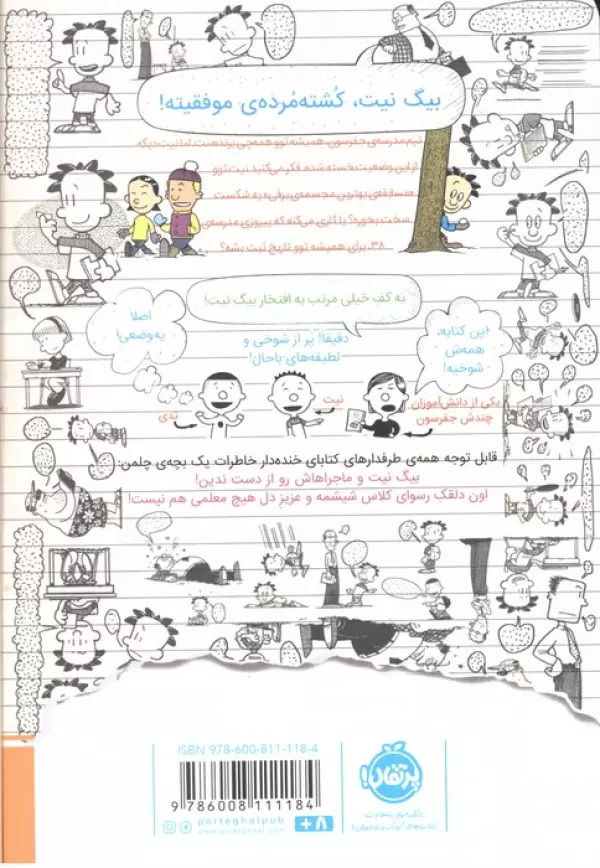 بیگ نیت، کُشته‌مُرده‌ی موفقیته!
تیم مدرسه‌ی جفرسون، همیشه توو همه‌چی برنده‌ست. اما نیت دیگه
از این وضعیت خسته شده. فکر می‌کنید نیت توو
مسابقه‌ی بهترین مجسمه‌ی برفی، یه شکست
سخت بخوره؟ یا کاری می‌کنه که پیروزی مدرسه‌ی
۳۸، برای همیشه توو تاریخ ثبت بشه؟
یه کف خیلی مرتب به افتخار بیگ نیت!
اصلا
یه‌وضعی!
دقیقا! پُر از شوخی و
لطیفه‌های باحال!
این کتابه،
همه‌ش
شوخیه!
تدی
نیت
یکی از دانش‌آموزان
چندش جفرسون
قابل توجه همه‌ی طرفدارهای کتابای خنده‌دار خاطرات یک بچه‌ی چلمن:
بیگ نیت و ماجراهاش رو از دست ندین!
اون دلقکِ رسوای کلاس شیشمه و عزیزِ دل هیچ معلمی هم نیست!
ISBN 978-600-811-118-4
9 786008 111184
porteghalpub
www.porteghaal.com
+۸
پرتقال!